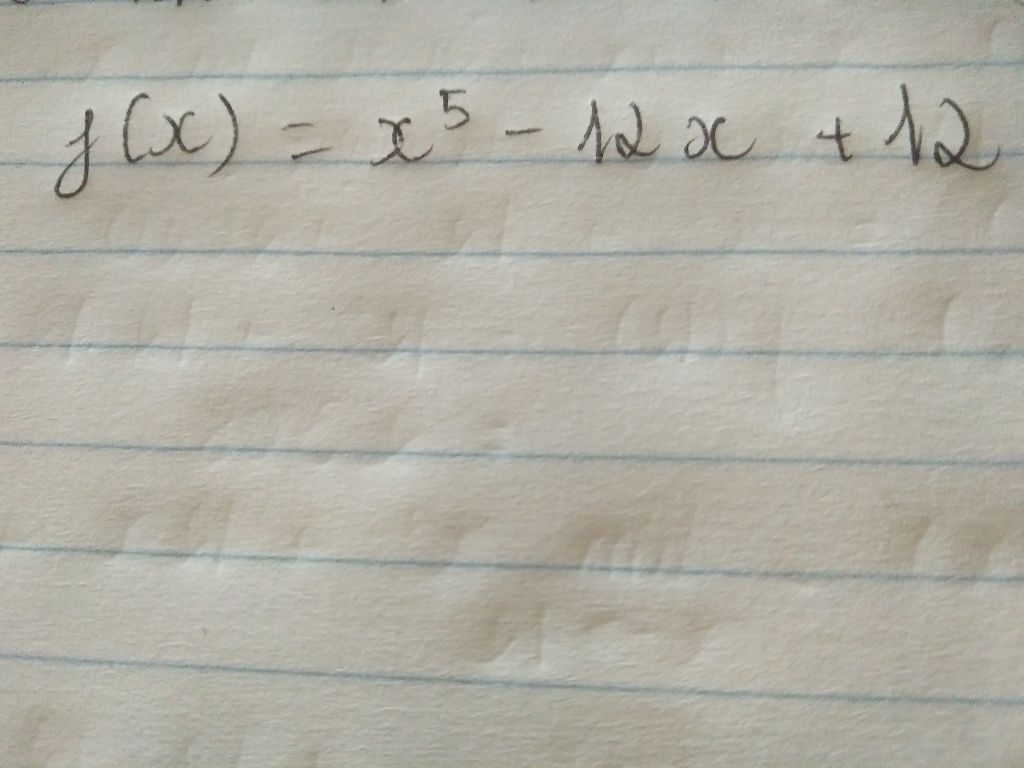 f(x) = x⁵ - 12x + 12